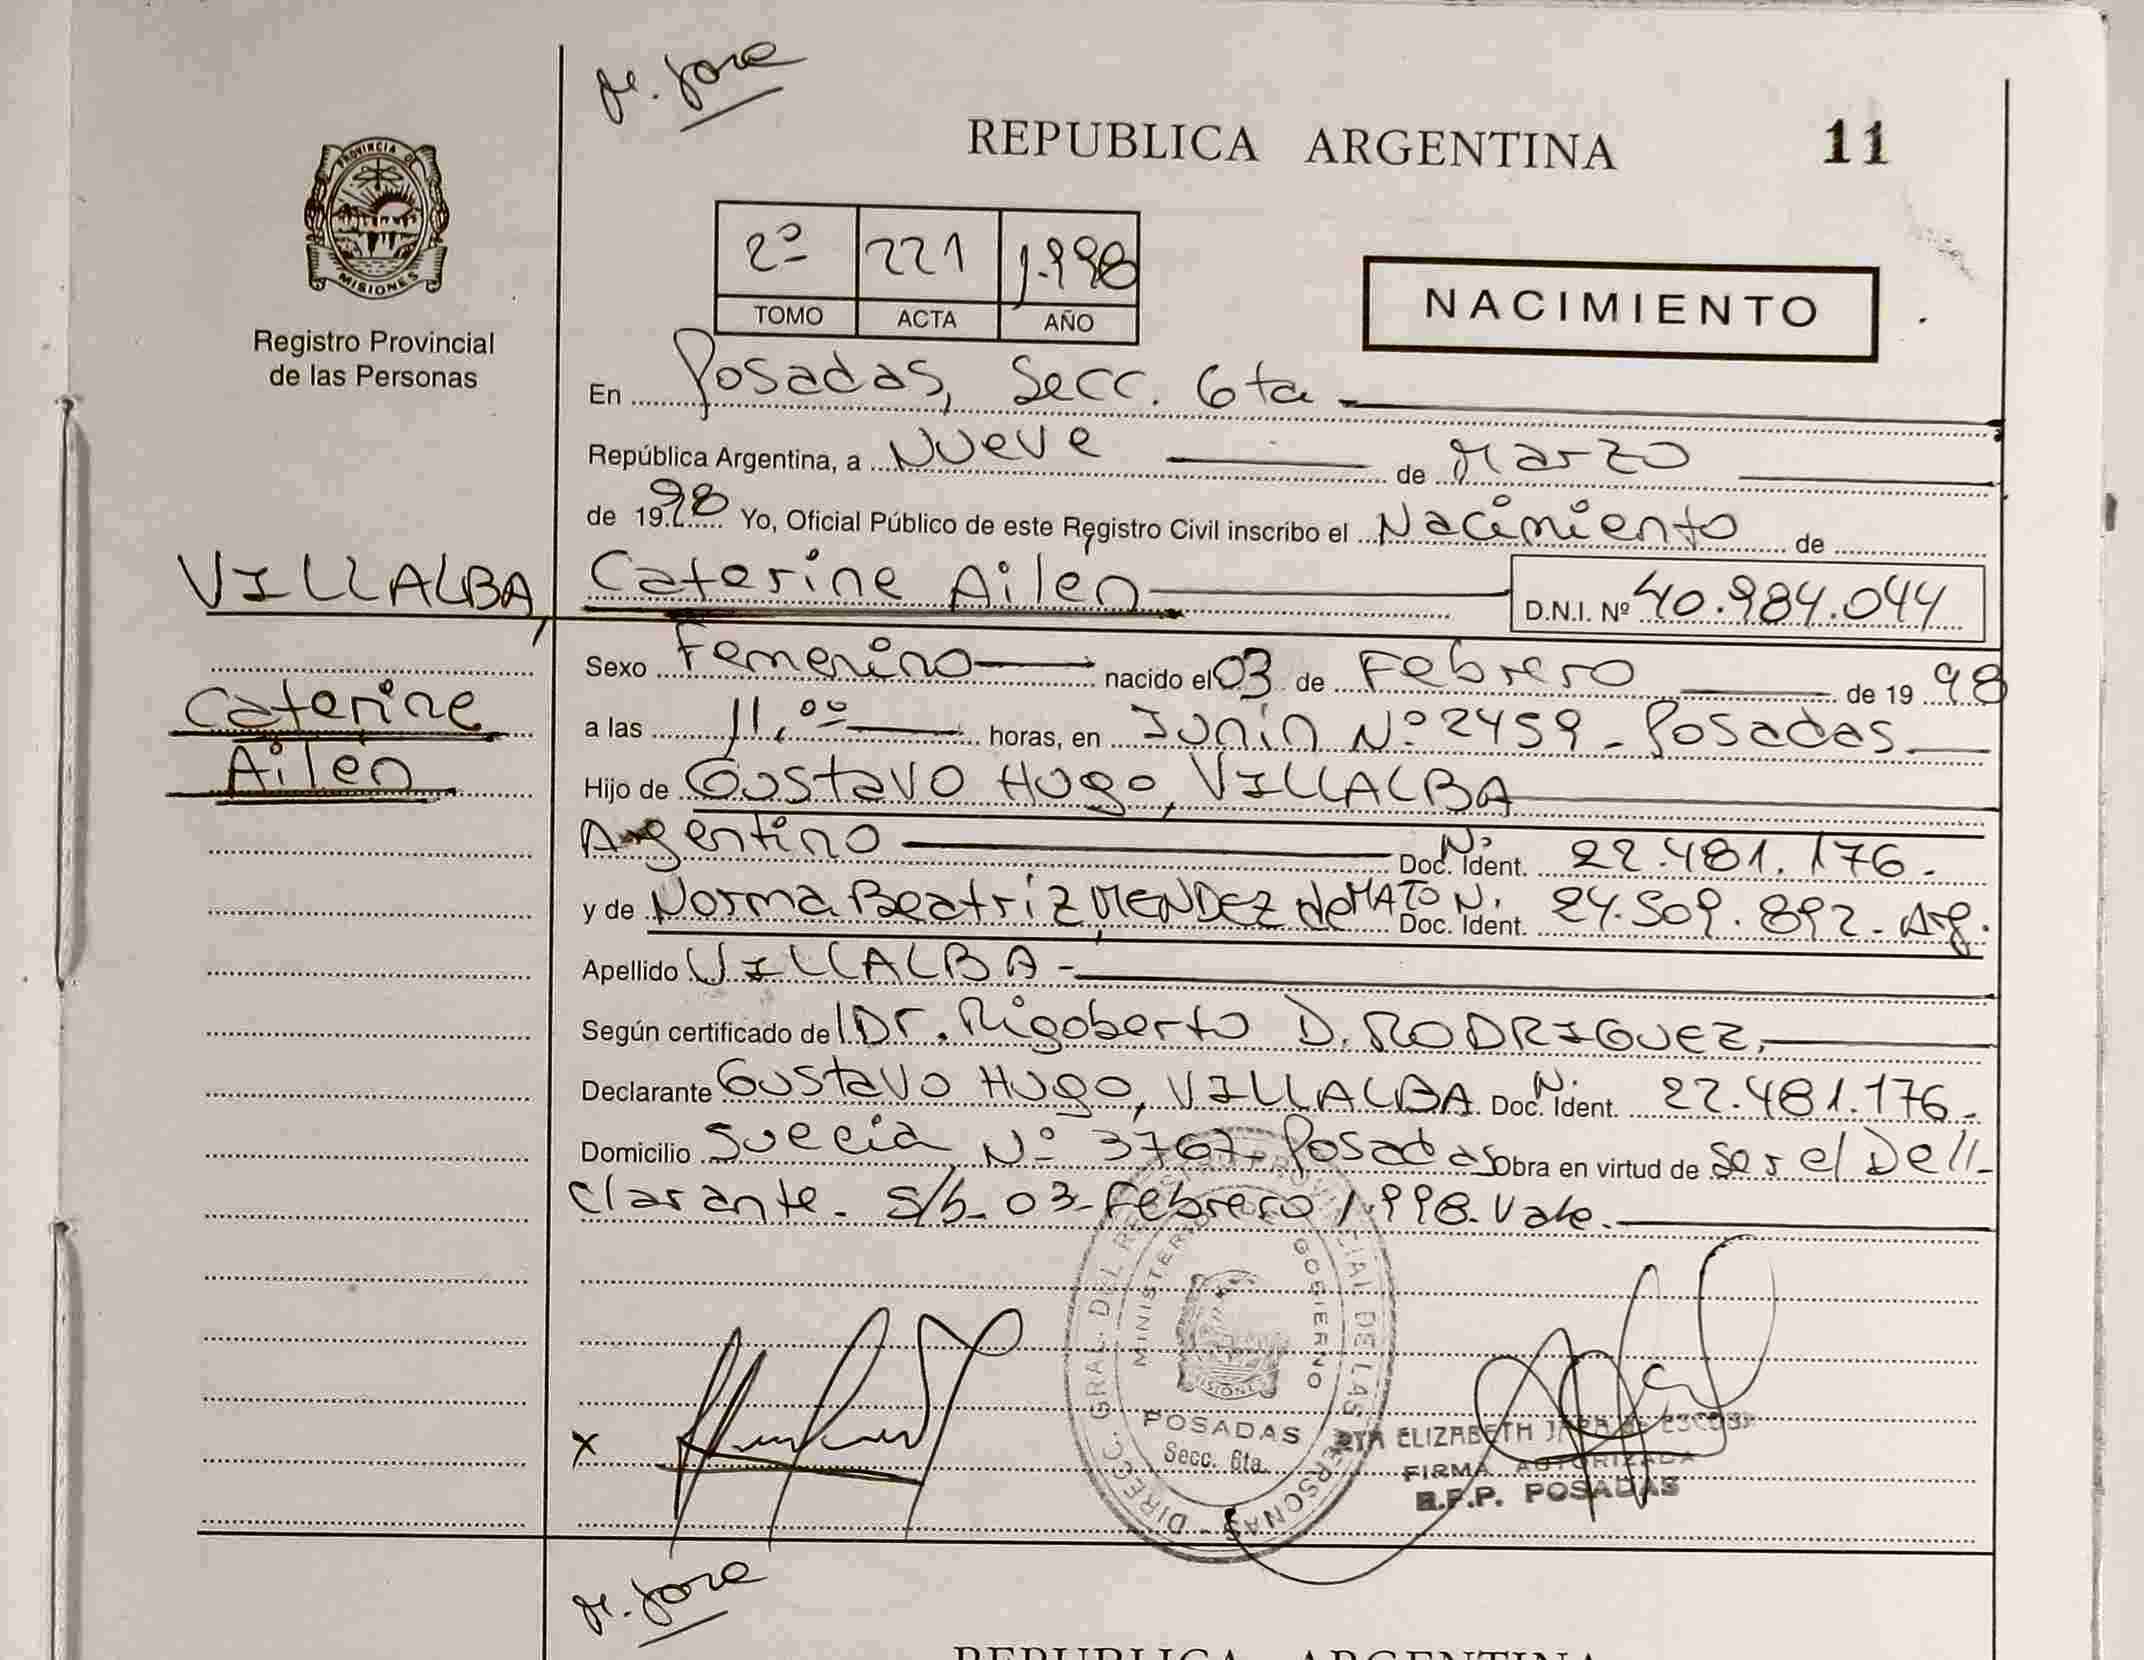 M. Jose
REPUBLICA ARGENTINA
11
PROVINCIA DE
MISIONES
Registro Provincial
de las Personas
2º 221 1.998
TOMO ACTA AÑO
NACIMIENTO
En Posadas, Secc. 6ta
República Argentina, a Nueve de Marzo
de 1998 Yo, Oficial Público de este Registro Civil inscribo el Nacimiento de
VILLALBA, Caterine Ailén D.N.I. Nº 40.984.044
Caterine
Ailén
Sexo Femenino nacido el 03 de Febrero de 1998
a las 11,00 horas, en Junin Nº 2459 - Posadas
Hijo de Gustavo Hugo, VILLALBA
Argentino Doc. Ident. Nº 22.481.176.
y de Norma Beatriz, MENDEZ de MATO Doc. Ident. N. 24.509.892 - Arg.
Apellido VILLALBA -
Según certificado del Dr. Rigoberto D. RODRIGUEZ,
Declarante Gustavo Hugo, VILLALBA. Doc. Ident. N. 22.481.176.
Domicilio Suecia Nº 3767 - Posadas Obra en virtud de ser el De//-
clarante. S/b. 03-Febrero 1.998. Vale.
DIRECC. GRAL. DEL REGISTRO PROVINCIAL DE LAS PERSONAS
MINISTERIO GOBIERNO
MISIONES
POSADAS
Secc. 6ta.
X
ELIZABETH
FIRMA AUTORIZADA
R.P.P. POSADAS
M. Jose
REPUBLICA ARGENTINA